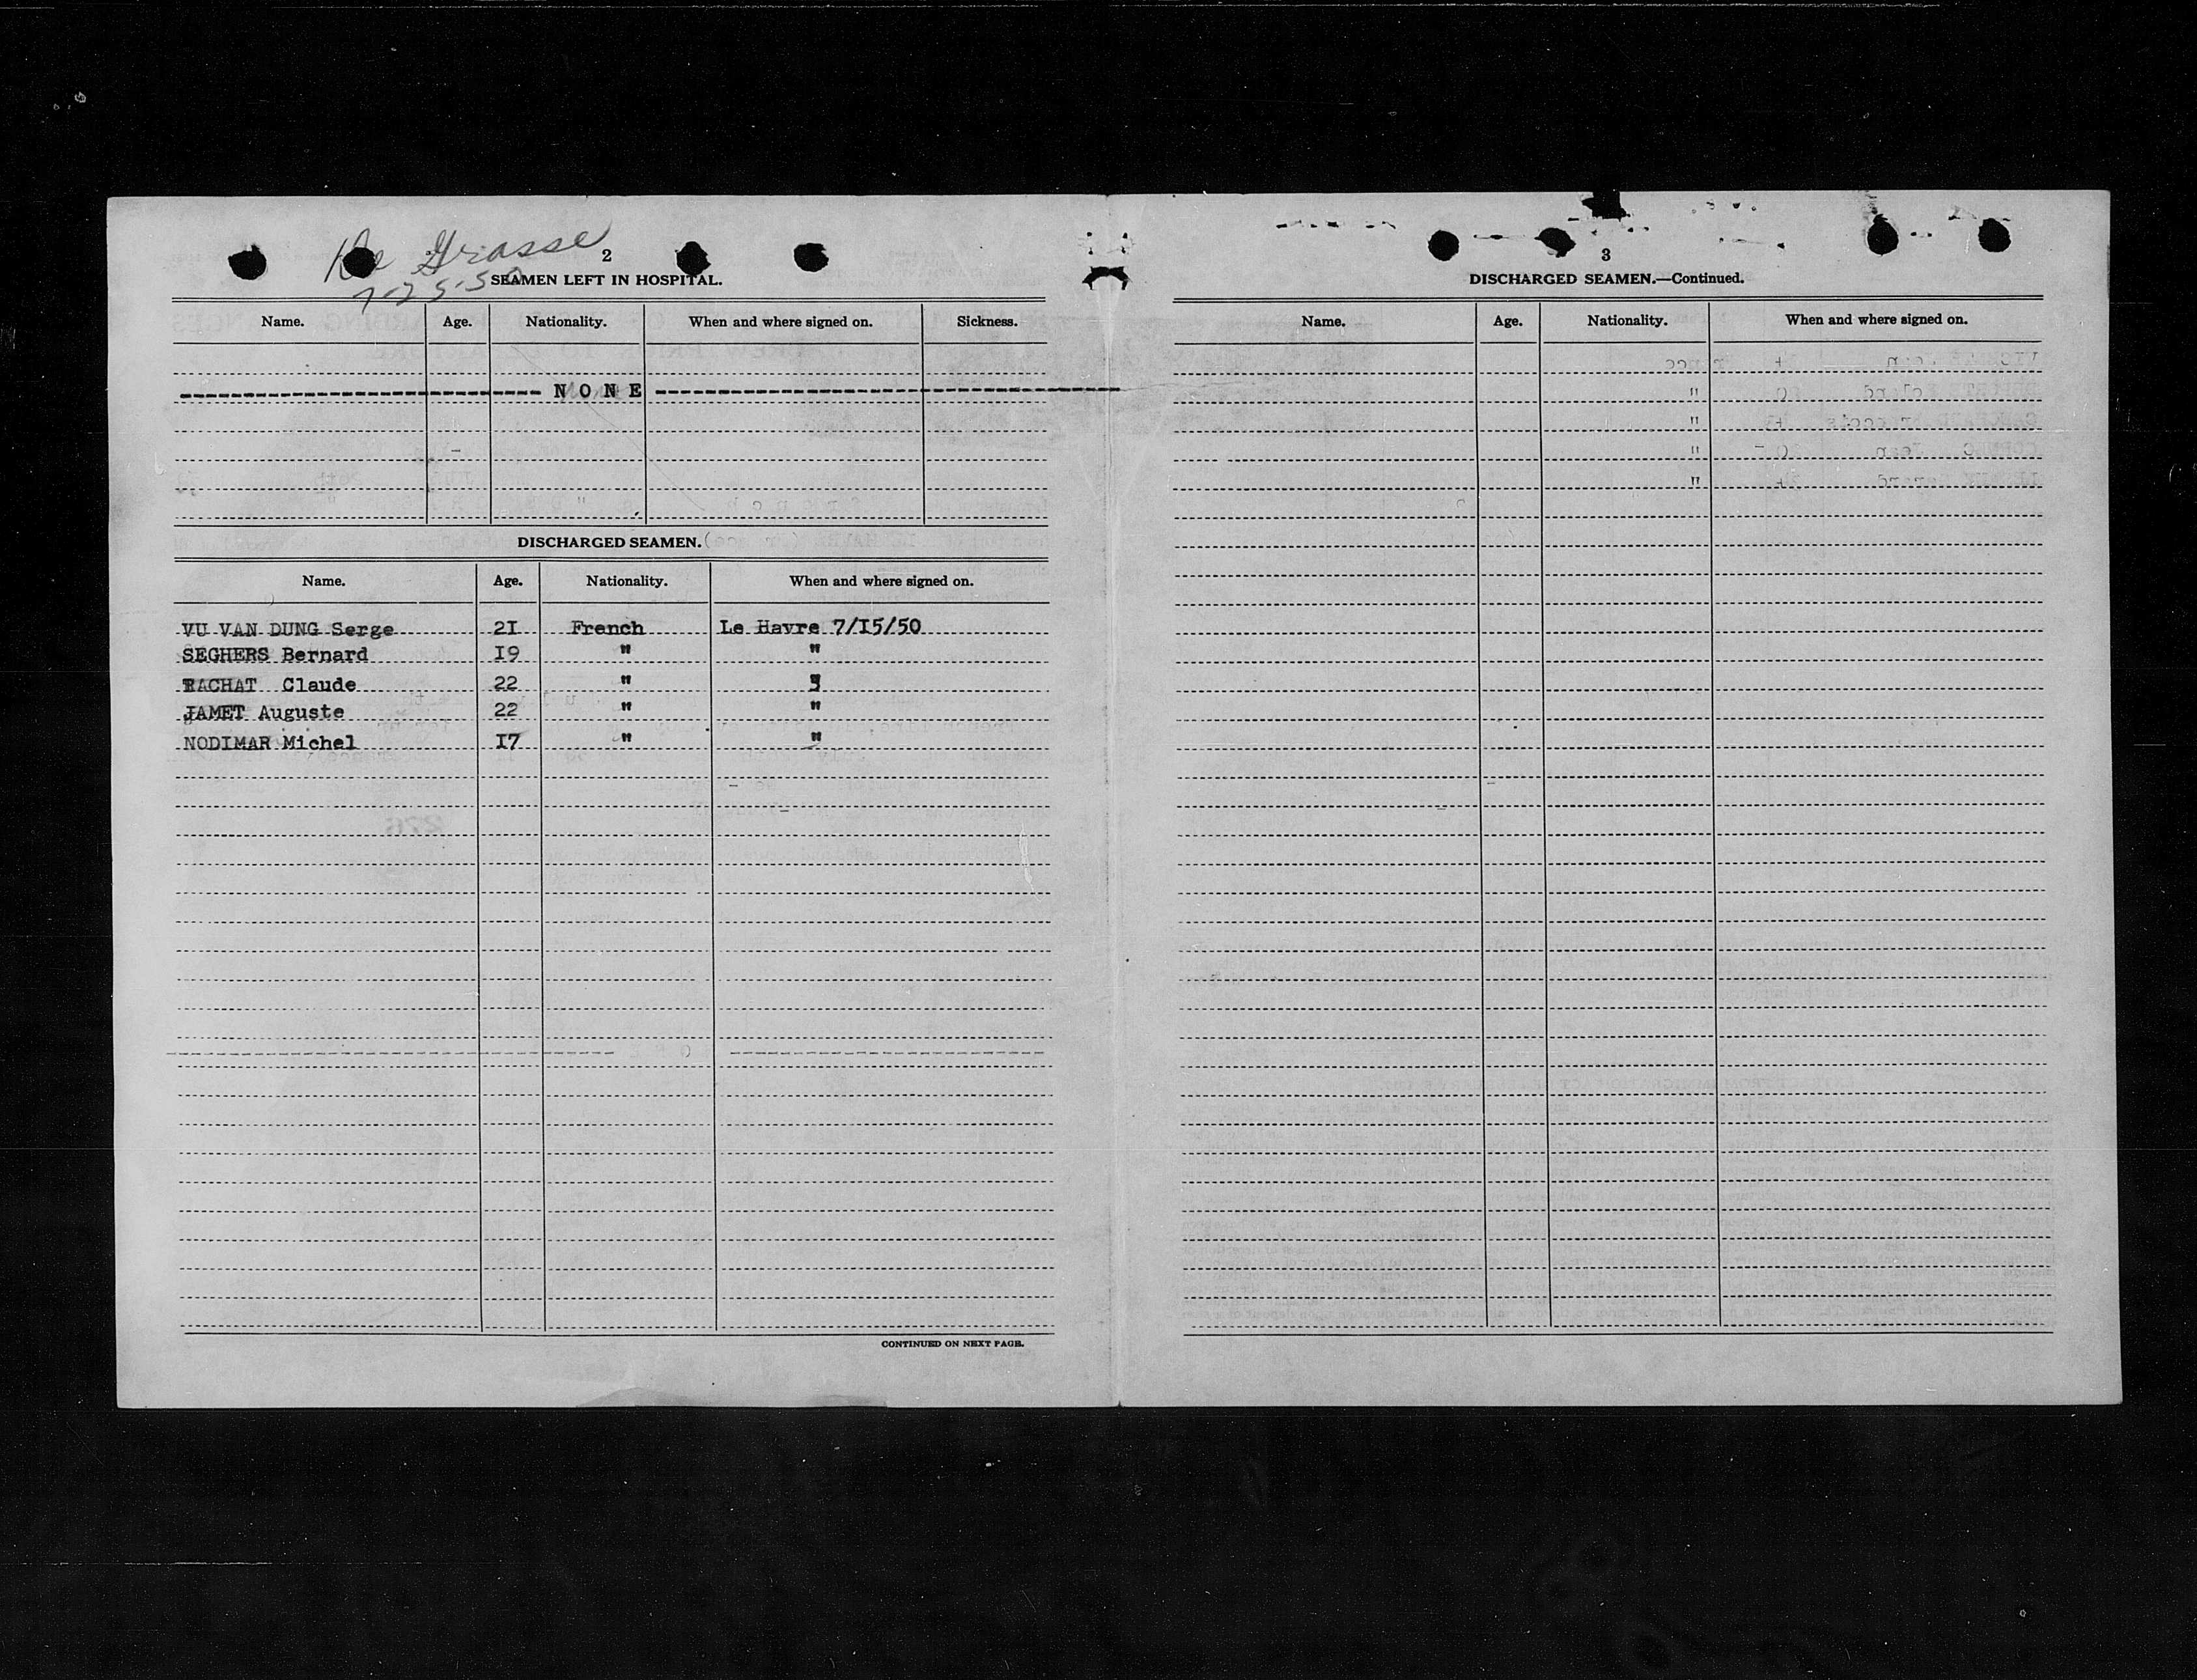 De Grasse
2
7-25-50
SEAMEN LEFT IN HOSPITAL.
Name. Age. Nationality. When and where signed on. Sickness.
NONE
DISCHARGED SEAMEN.
Name. Age. Nationality. When and where signed on.
VU VAN DUNG Serge 2I French Le Havre 7/I5/50
SEGHERS Bernard I9 " "
RACHAT Claude 22 " "
JAMET Auguste 22 " "
NODIMAR Michel I7 " "
CONTINUED ON NEXT PAGE.
3
DISCHARGED SEAMEN.—Continued.
Name. Age. Nationality. When and where signed on.